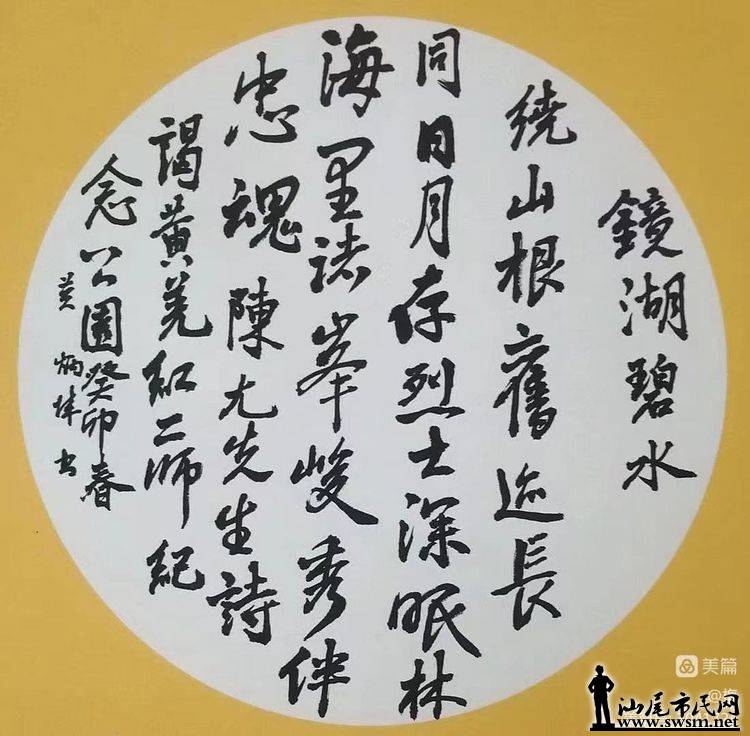 鏡湖碧水
繞山根舊迹長
同日月存烈士深眠林
海里諸峯峻秀伴
忠魂陳尤先生詩
謁黃羌紅二師紀
念公園癸卯春
黃炳炜书
美篇
汕尾市民网
www.swsm.net